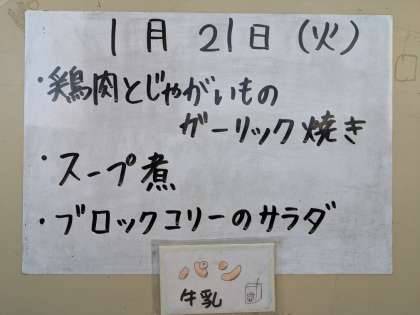 1月21日(火)
・鶏肉とじゃがいもの
ガーリック焼き
・スープ煮
・ブロックコリーのサラダ
パン
牛乳